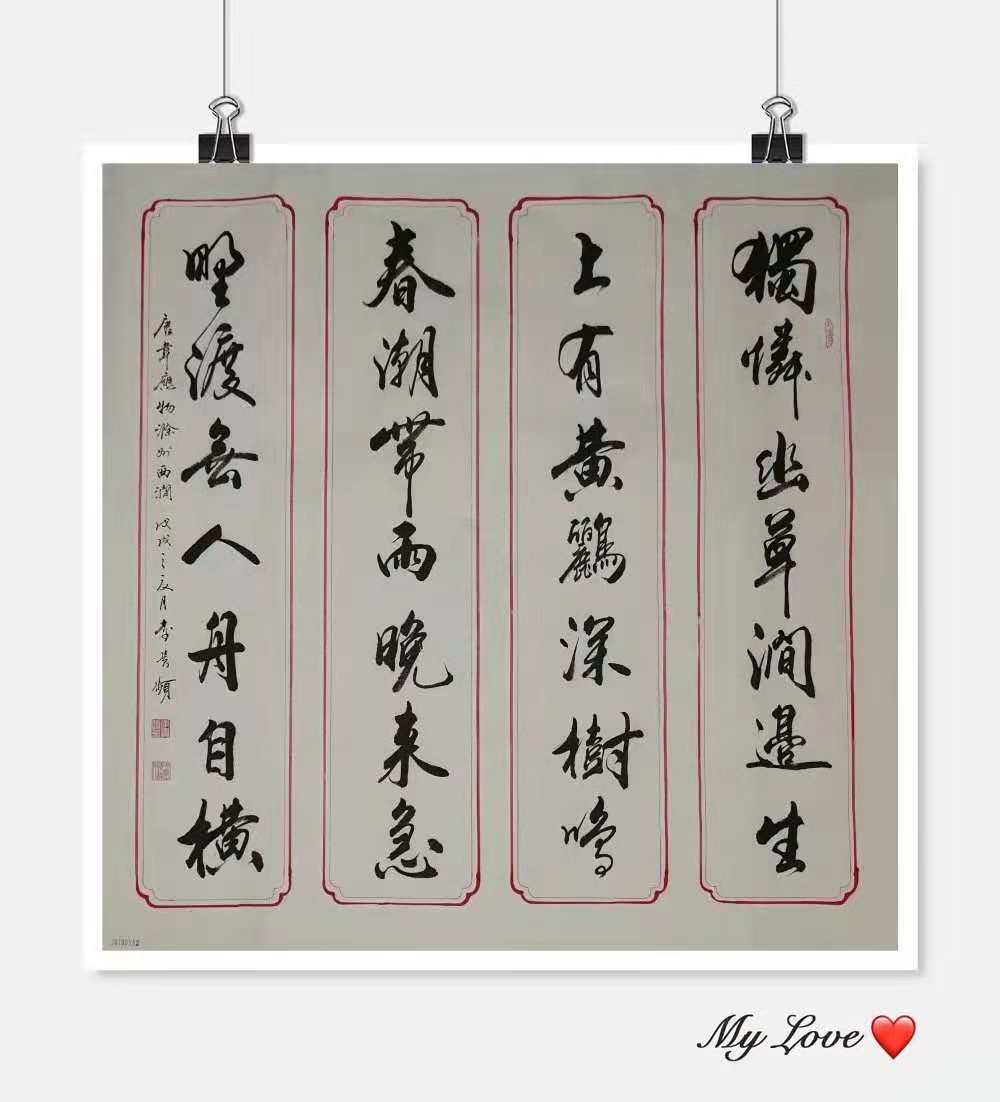 獨憐幽草澗邊生
上有黃鸝深樹鳴
春潮帶雨晚來急
野渡無人舟自橫
唐韋應物滁州西澗 戊戌之夏月李
My Love ❤